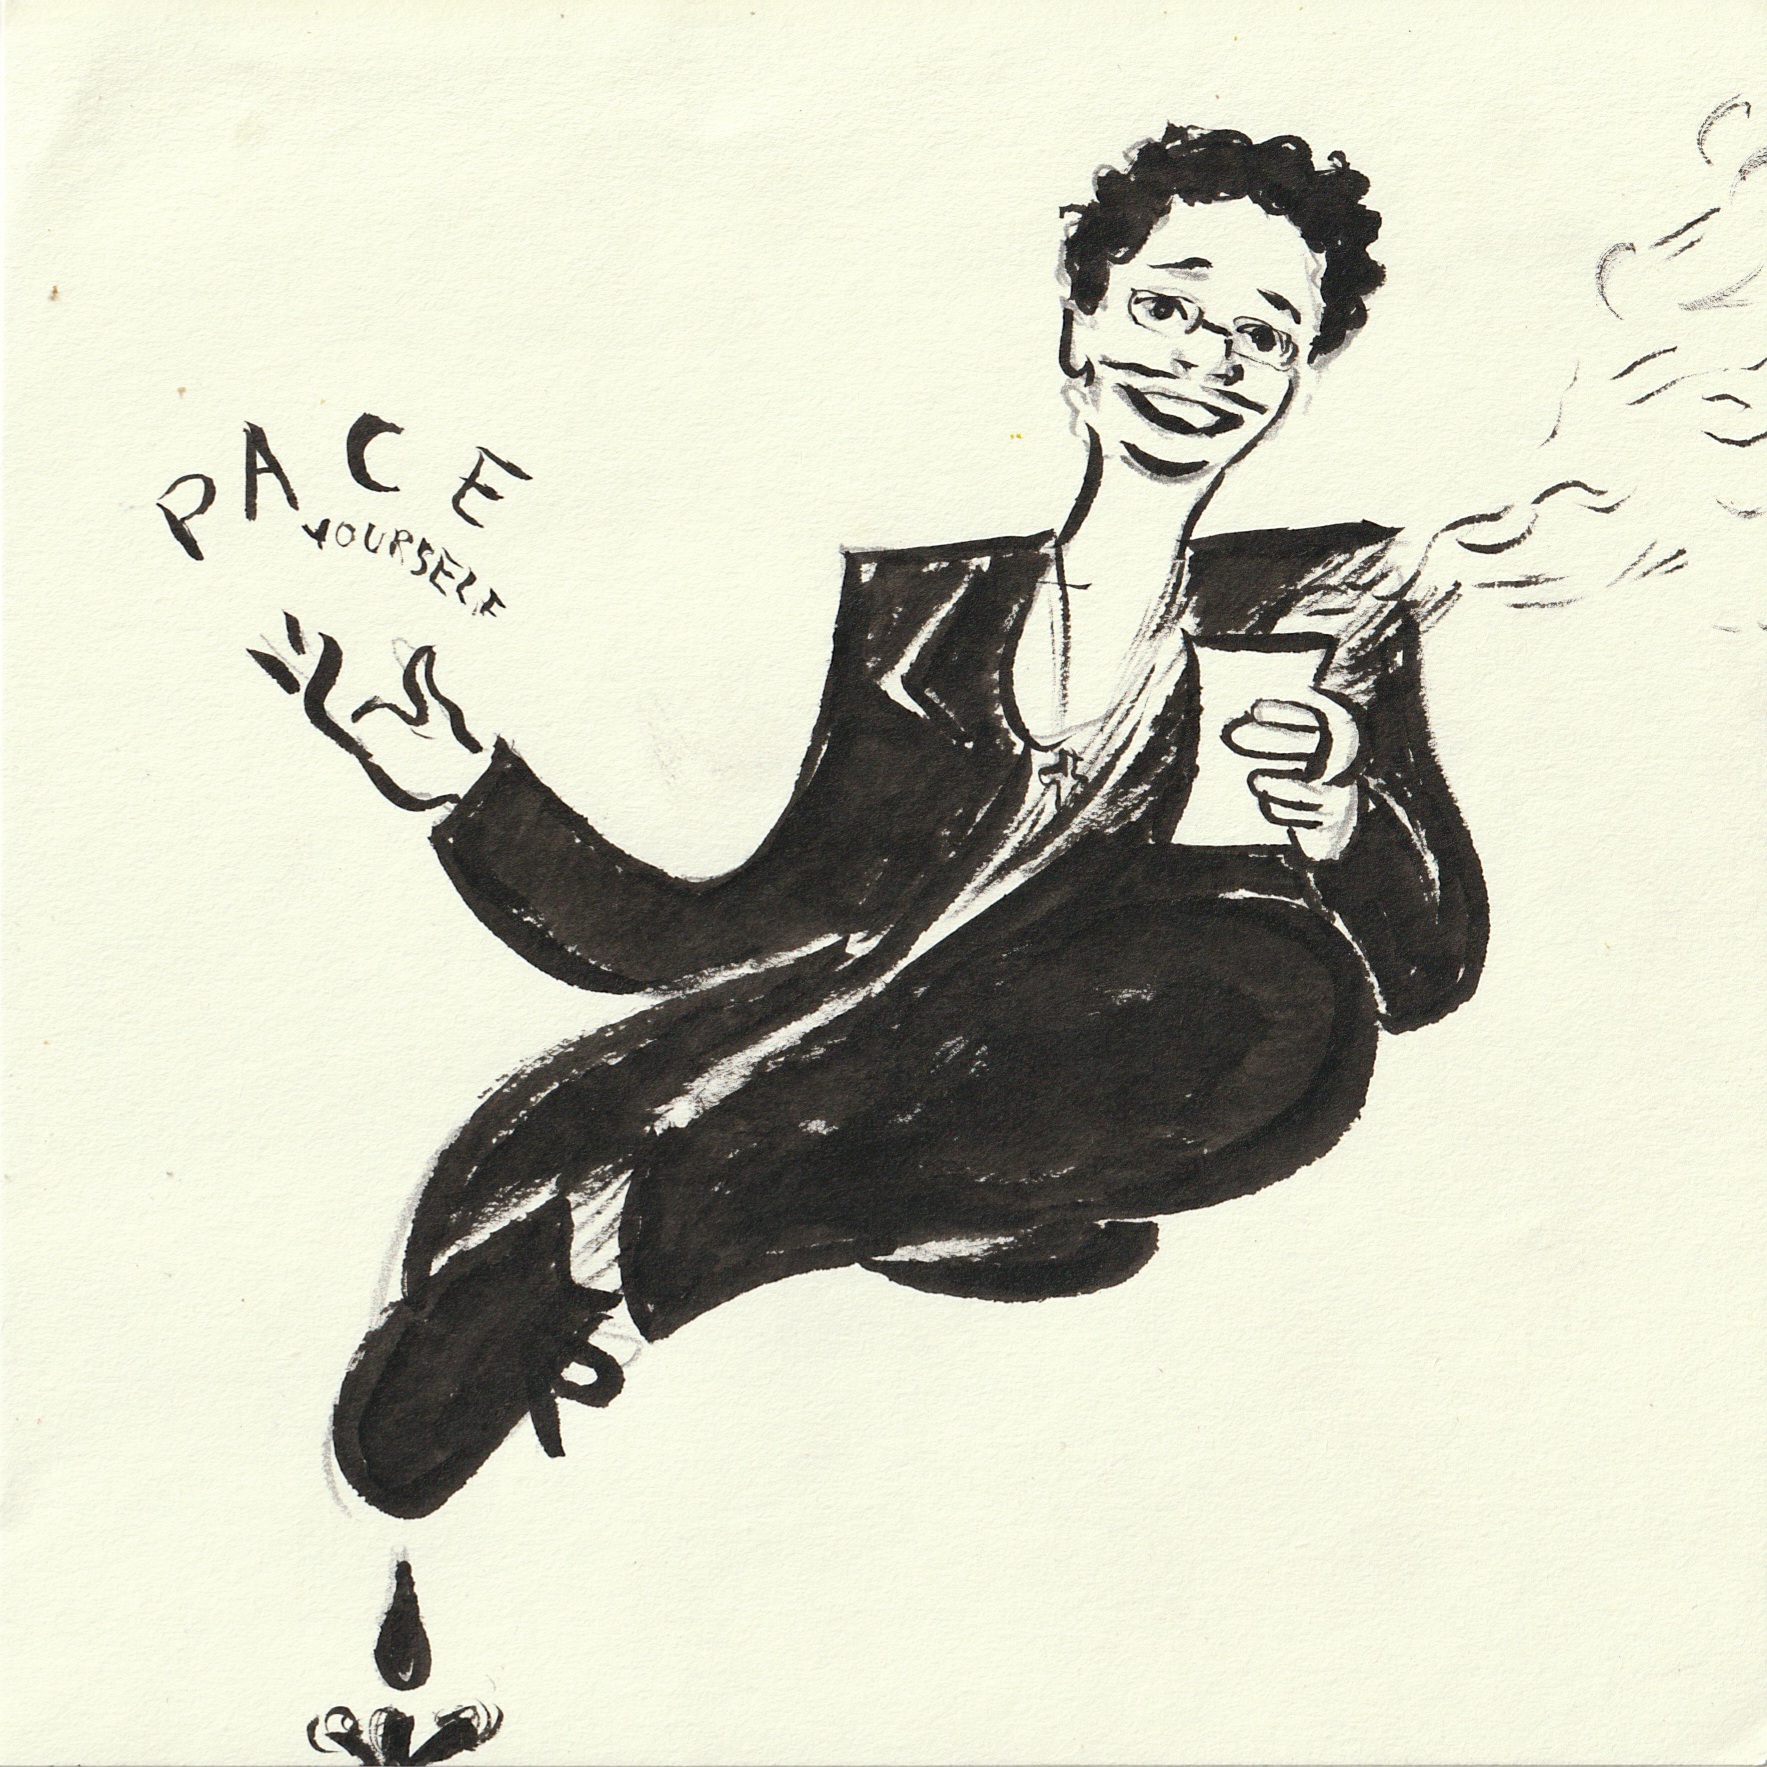 PACE
YOURSELF